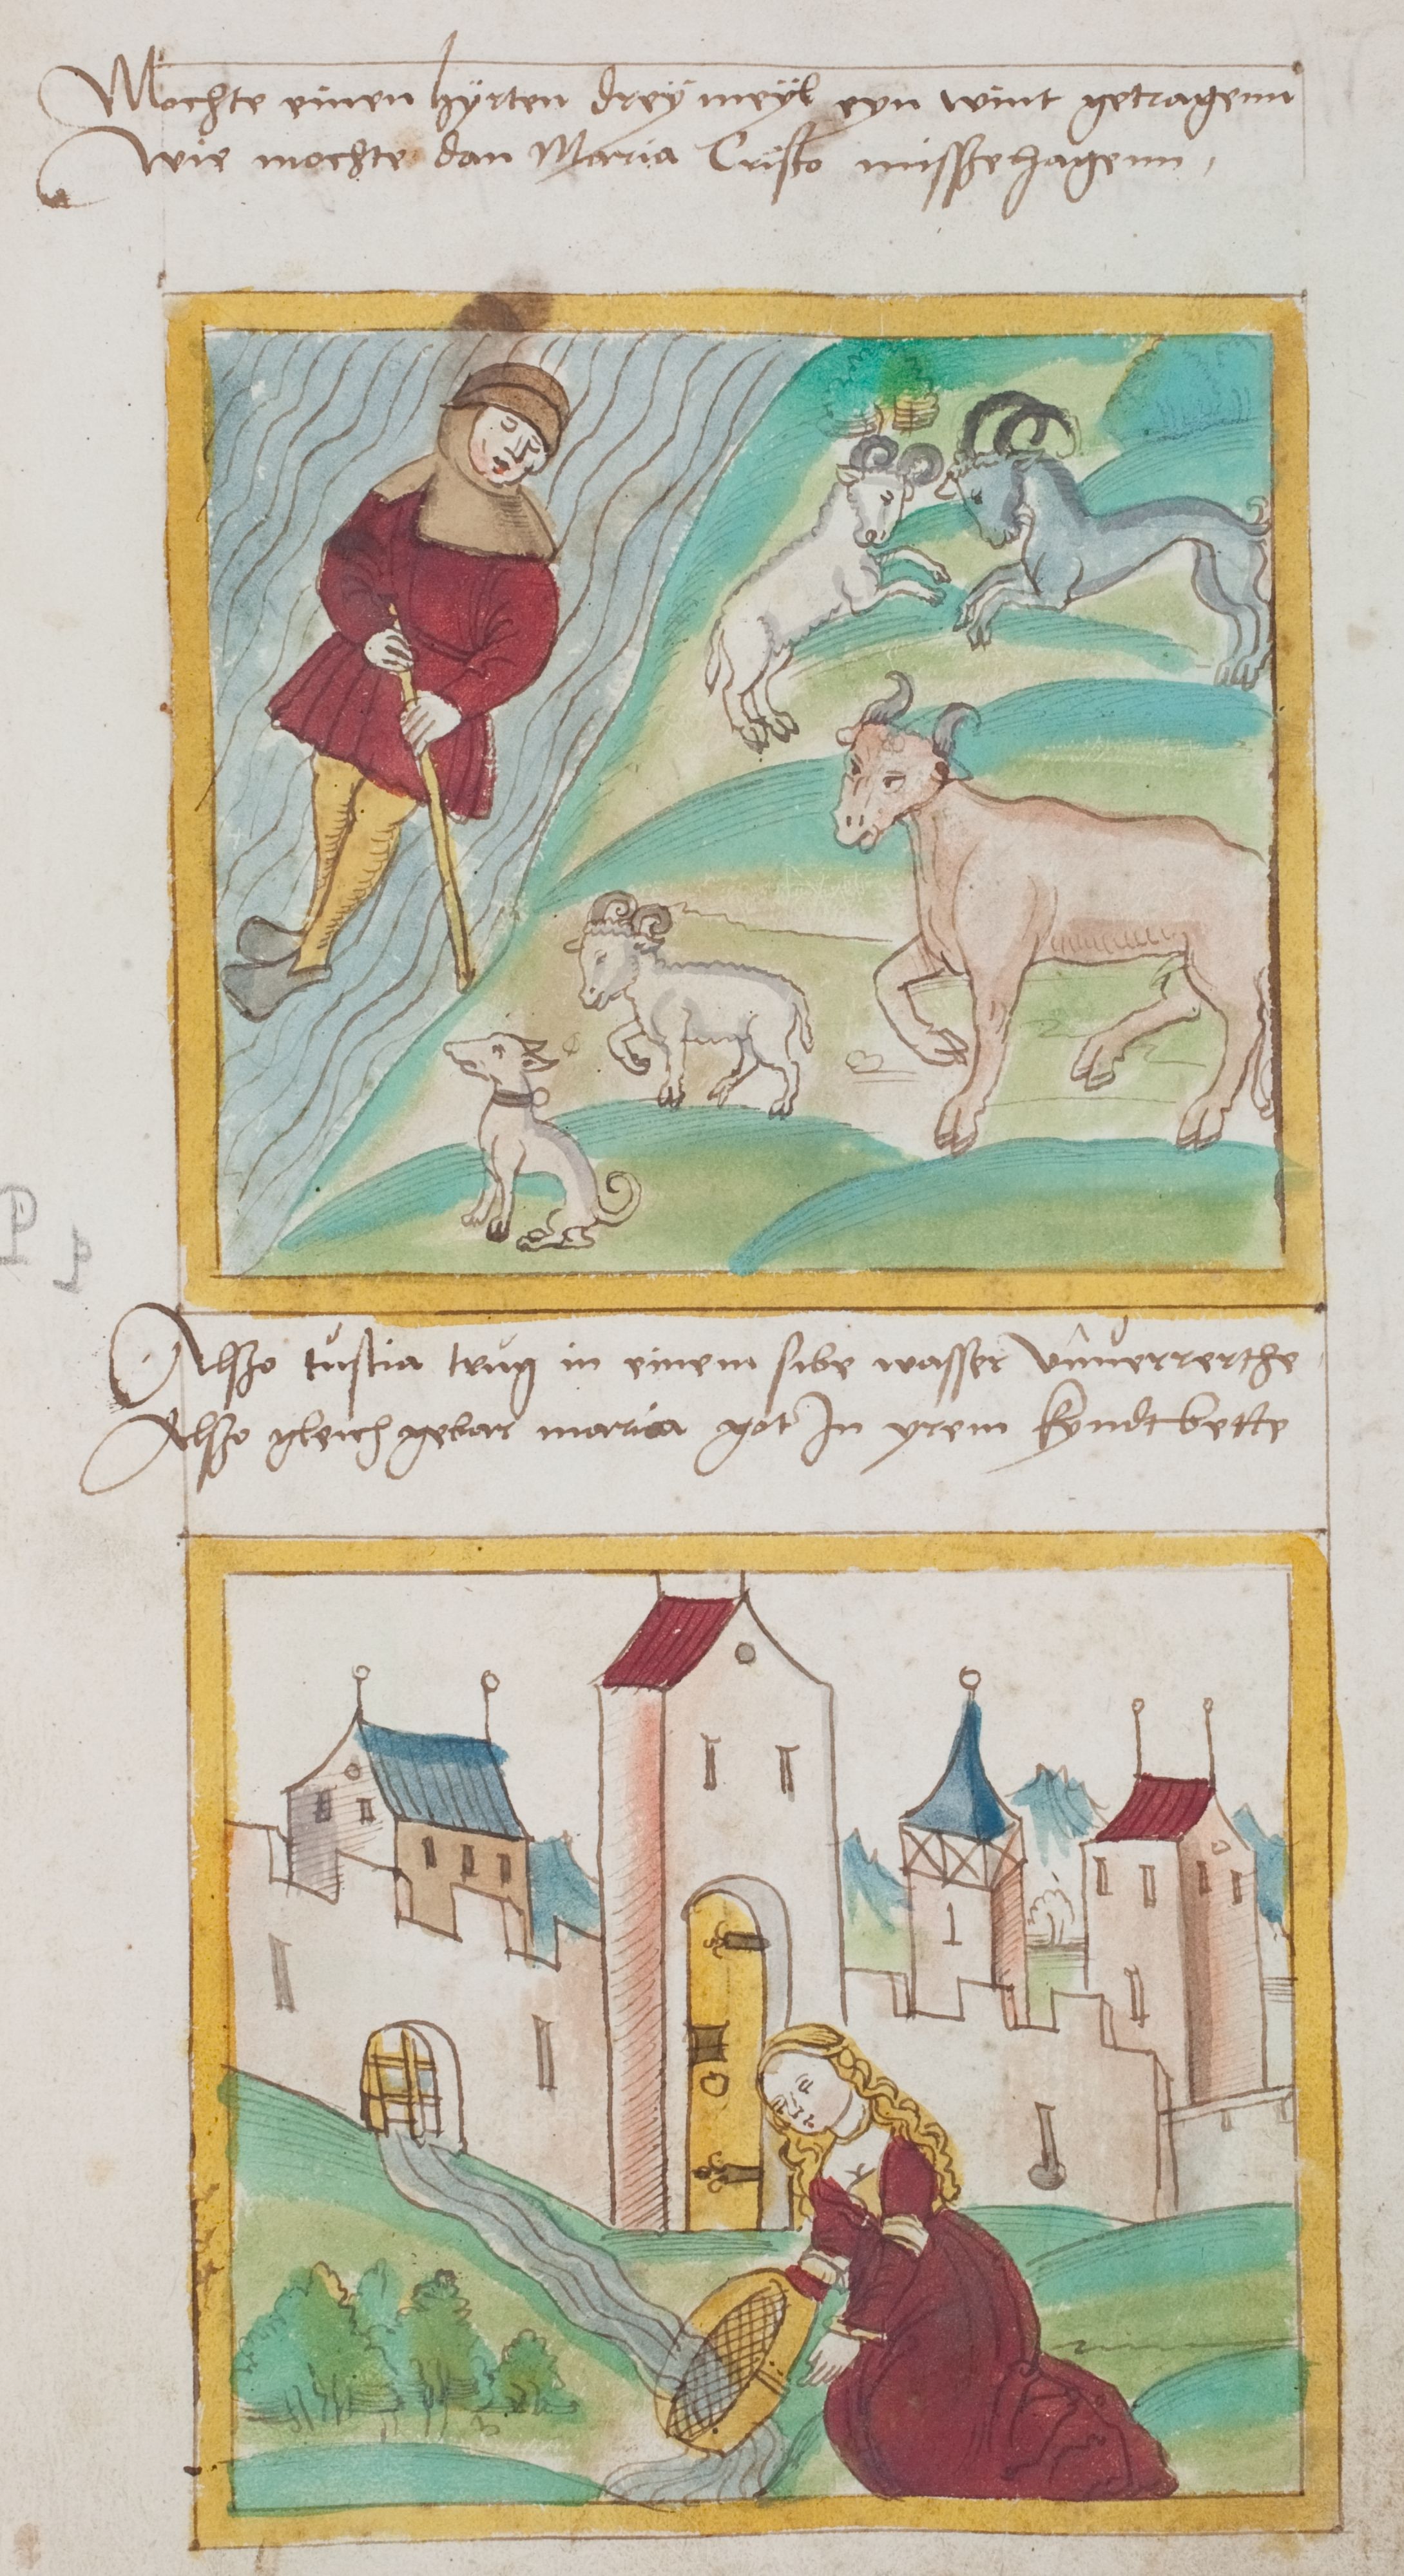 Mochte einen hÿrten dreÿ meÿl eyn wint getragenn
wie mochte dan Maria Cristo misßehagenn,
Alßo tustia trug in einem sibe wasser
Alßo gleich gebar maria got In yrem kyndtbette